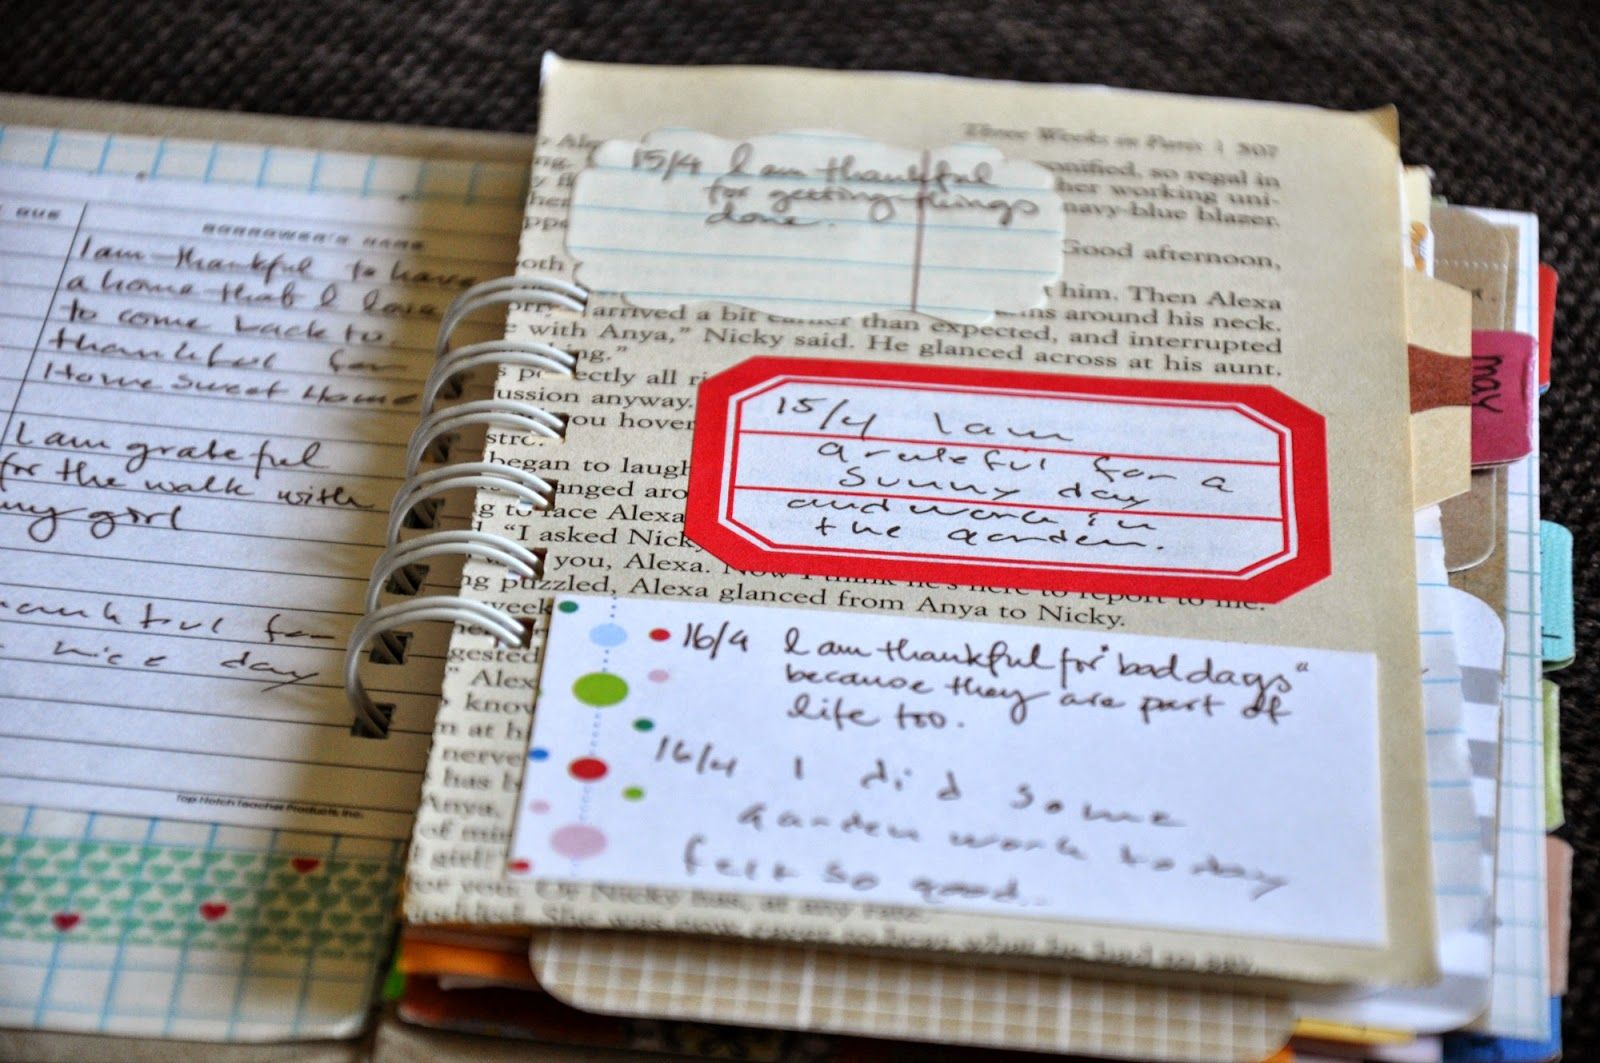 BORROWER'S NAME
I am thankful to have
a home that I love
to come back to.
thankful for
Home Sweet Home
I am grateful
for the walk with
my girl
thankful for
nice day
Top Notch Teacher Products, Inc.
Three Weeks in Paris | 307
onified, so regal in
her working uni-
navy-blue blazer.
Good afternoon,
him. Then Alexa
around his neck.
arrived a bit earlier than expected, and interrupted
with Anya,” Nicky said. He glanced across at his aunt.
king.”
ectly all ri
ussion anyway.
you hover
began to laugh
anged aro
to face Alexa
“I asked Nicky
you, Alexa. Now I think he's here to report to me.
ng puzzled, Alexa glanced from Anya to Nicky.
week
gested
” Alex
know
m at h
nerve
has b
Anya,
of mi
girl!”
for you. Or Nicky has, at any rate.”
nodded. She was
15/4 I am thankful
for getting things
done.
15/4 I am
grateful for a
sunny day
and work in
the garden.
16/4 I am thankful for "bad days"
because they are part of
life too.
16/4 I did some
garden work today
felt so good..
may